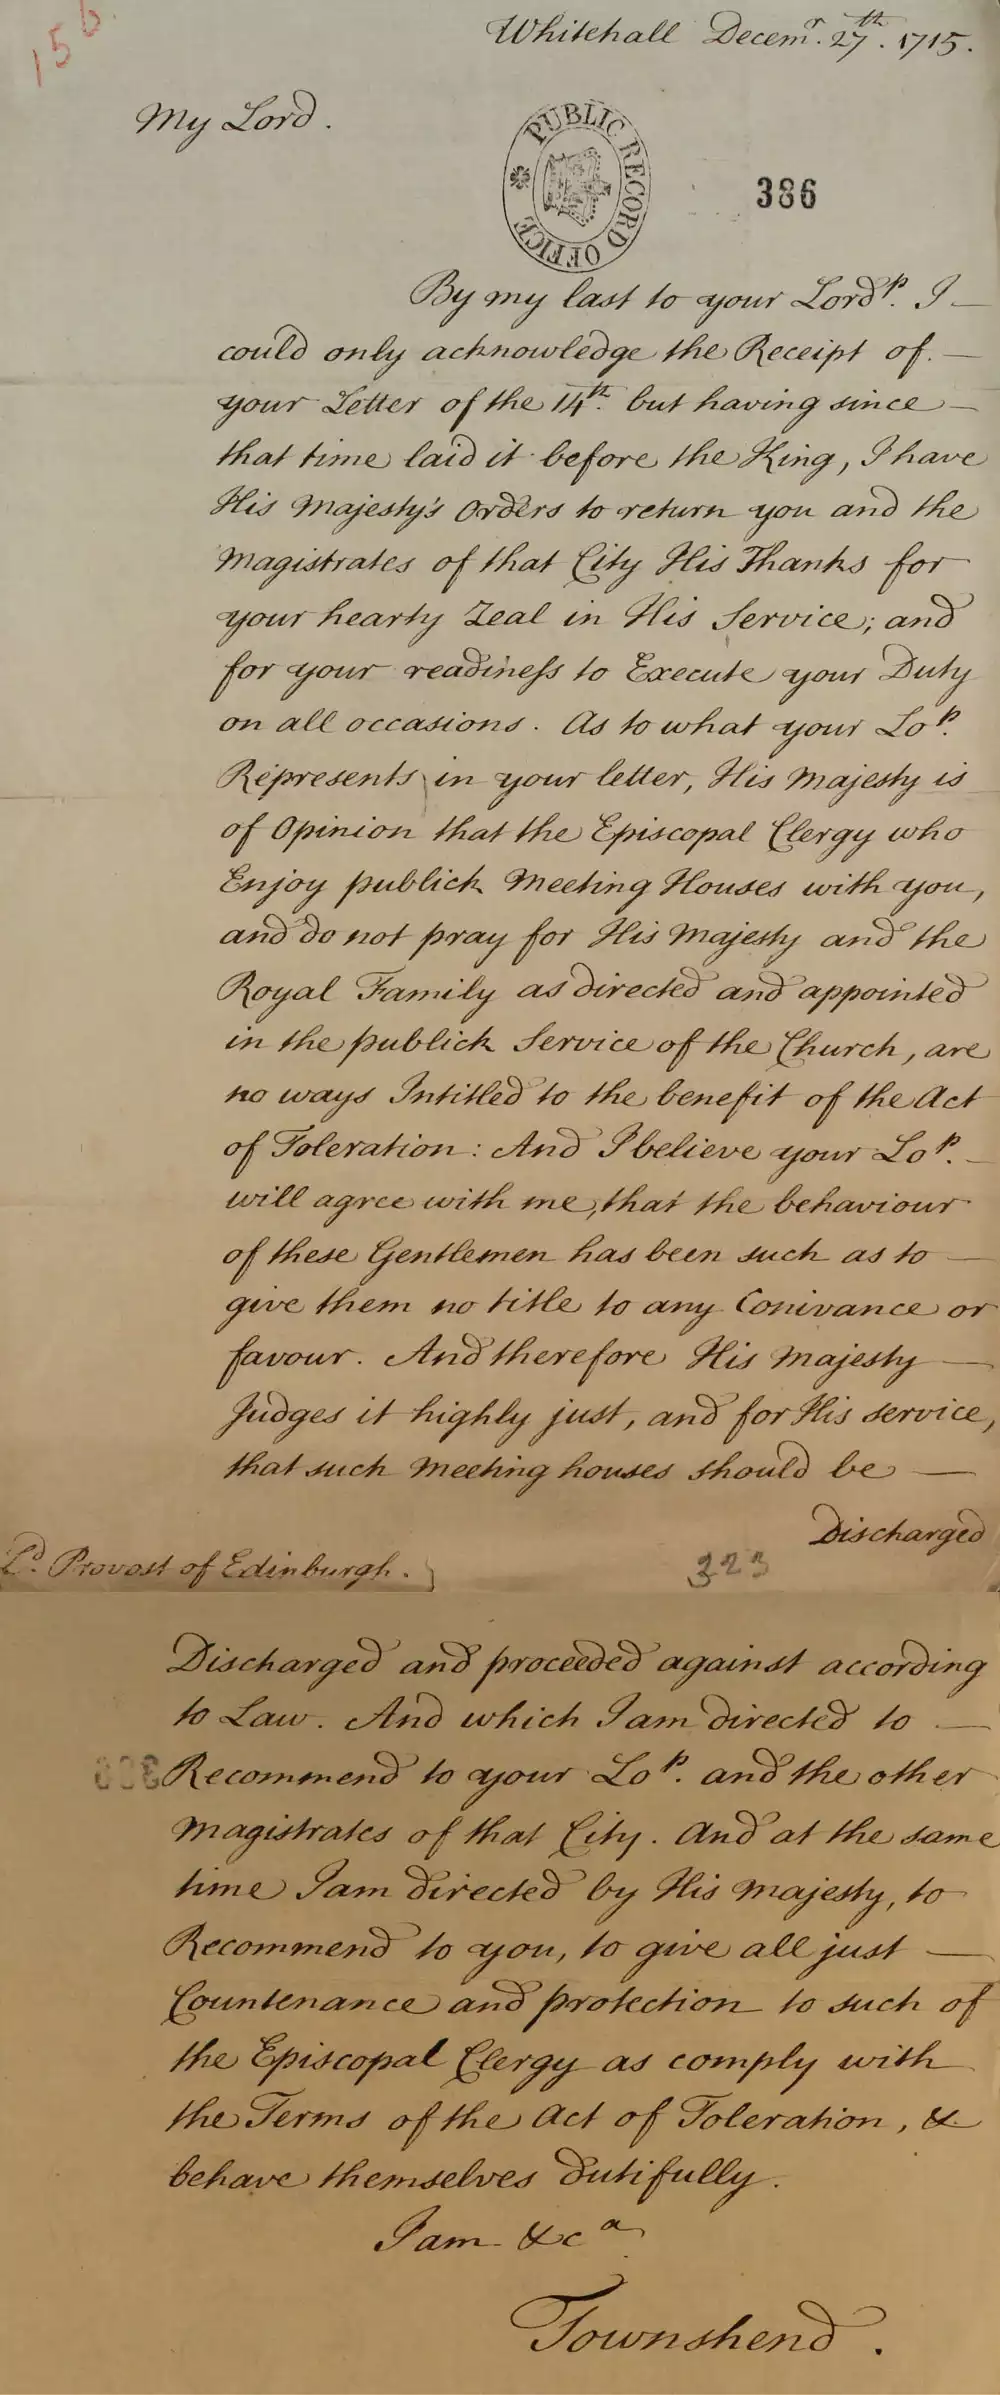 156
Whitehall Decem.r 27th. 1715.
My Lord.
PUBLIC RECORD OFFICE
386
By my last to your Lordp. I —
could only acknowledge the Receipt of. —
your Letter of the 14th. but having since —
that time laid it before the King, I have
His Majesty's Orders to return you and the
Magistrates of that City His Thanks for
your hearty Zeal in His Service; and
for your readiness to Execute your Duty
on all occasions. As to what your Lop.
Represents in your letter, His Majesty is
of Opinion that the Episcopal Clergy who
Enjoy publick Meeting Houses with you,
and do not pray for His Majesty and the
Royal Family as directed and appointed
in the publick Service of the Church, are
no ways Intitled to the benefit of the Act
of Toleration: And I believe your Lop. —
will agree with me, that the behaviour
of these Gentlemen has been such as to —
give them no title to any Conivance or
favour. And therefore His Majesty —
Judges it highly just, and for His service,
that such Meeting houses should be —
Discharged
Ld. Provost of Edinburgh.
323
Discharged and proceeded against according
to Law. And which I am directed to —
Recommend to your Lop. and the other
Magistrates of that City. And at the same
time I am directed by His Majesty, to
Recommend to you, to give all just —
Countenance and protection to such of
the Episcopal Clergy as comply with
the Terms of the Act of Toleration, &
behave themselves dutifully.
I am &ca
Townshend.